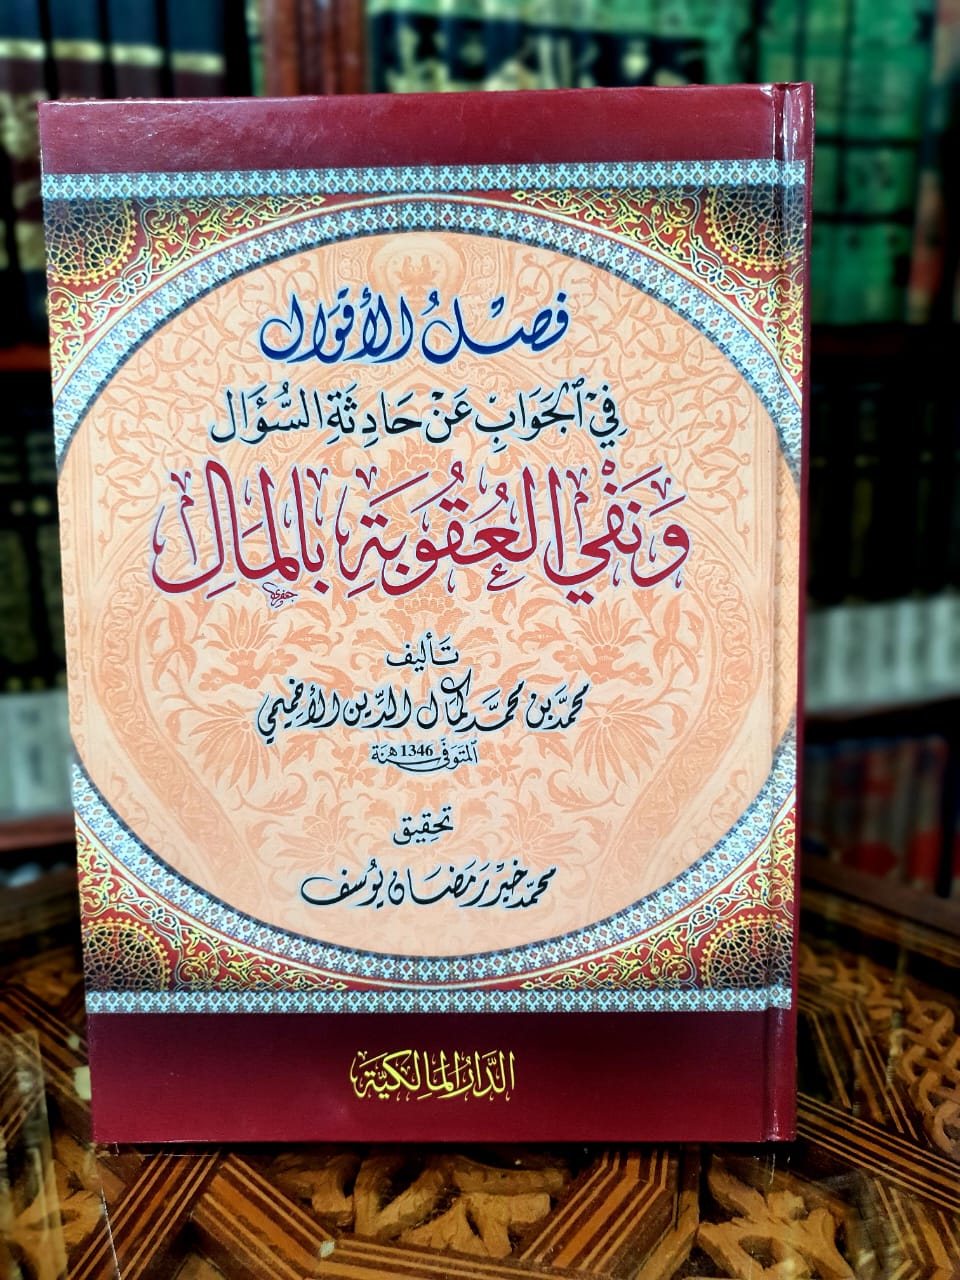 فَصْلُ الأَقْوَالِ
فِي الْجَوَابِ عَنْ حَادِثَةِ السُّؤَالِ
وَنَفْيِ الْعُقُوبَةِ بِالْمَالِ
تَأليف
محمّد بن محمّد كمال الدّين الأخميمي
المتوفى سنة 1346هـ
تحقيق
محمّد خير رمضان يوسف
الدَّارُ المَالِكِيَّة